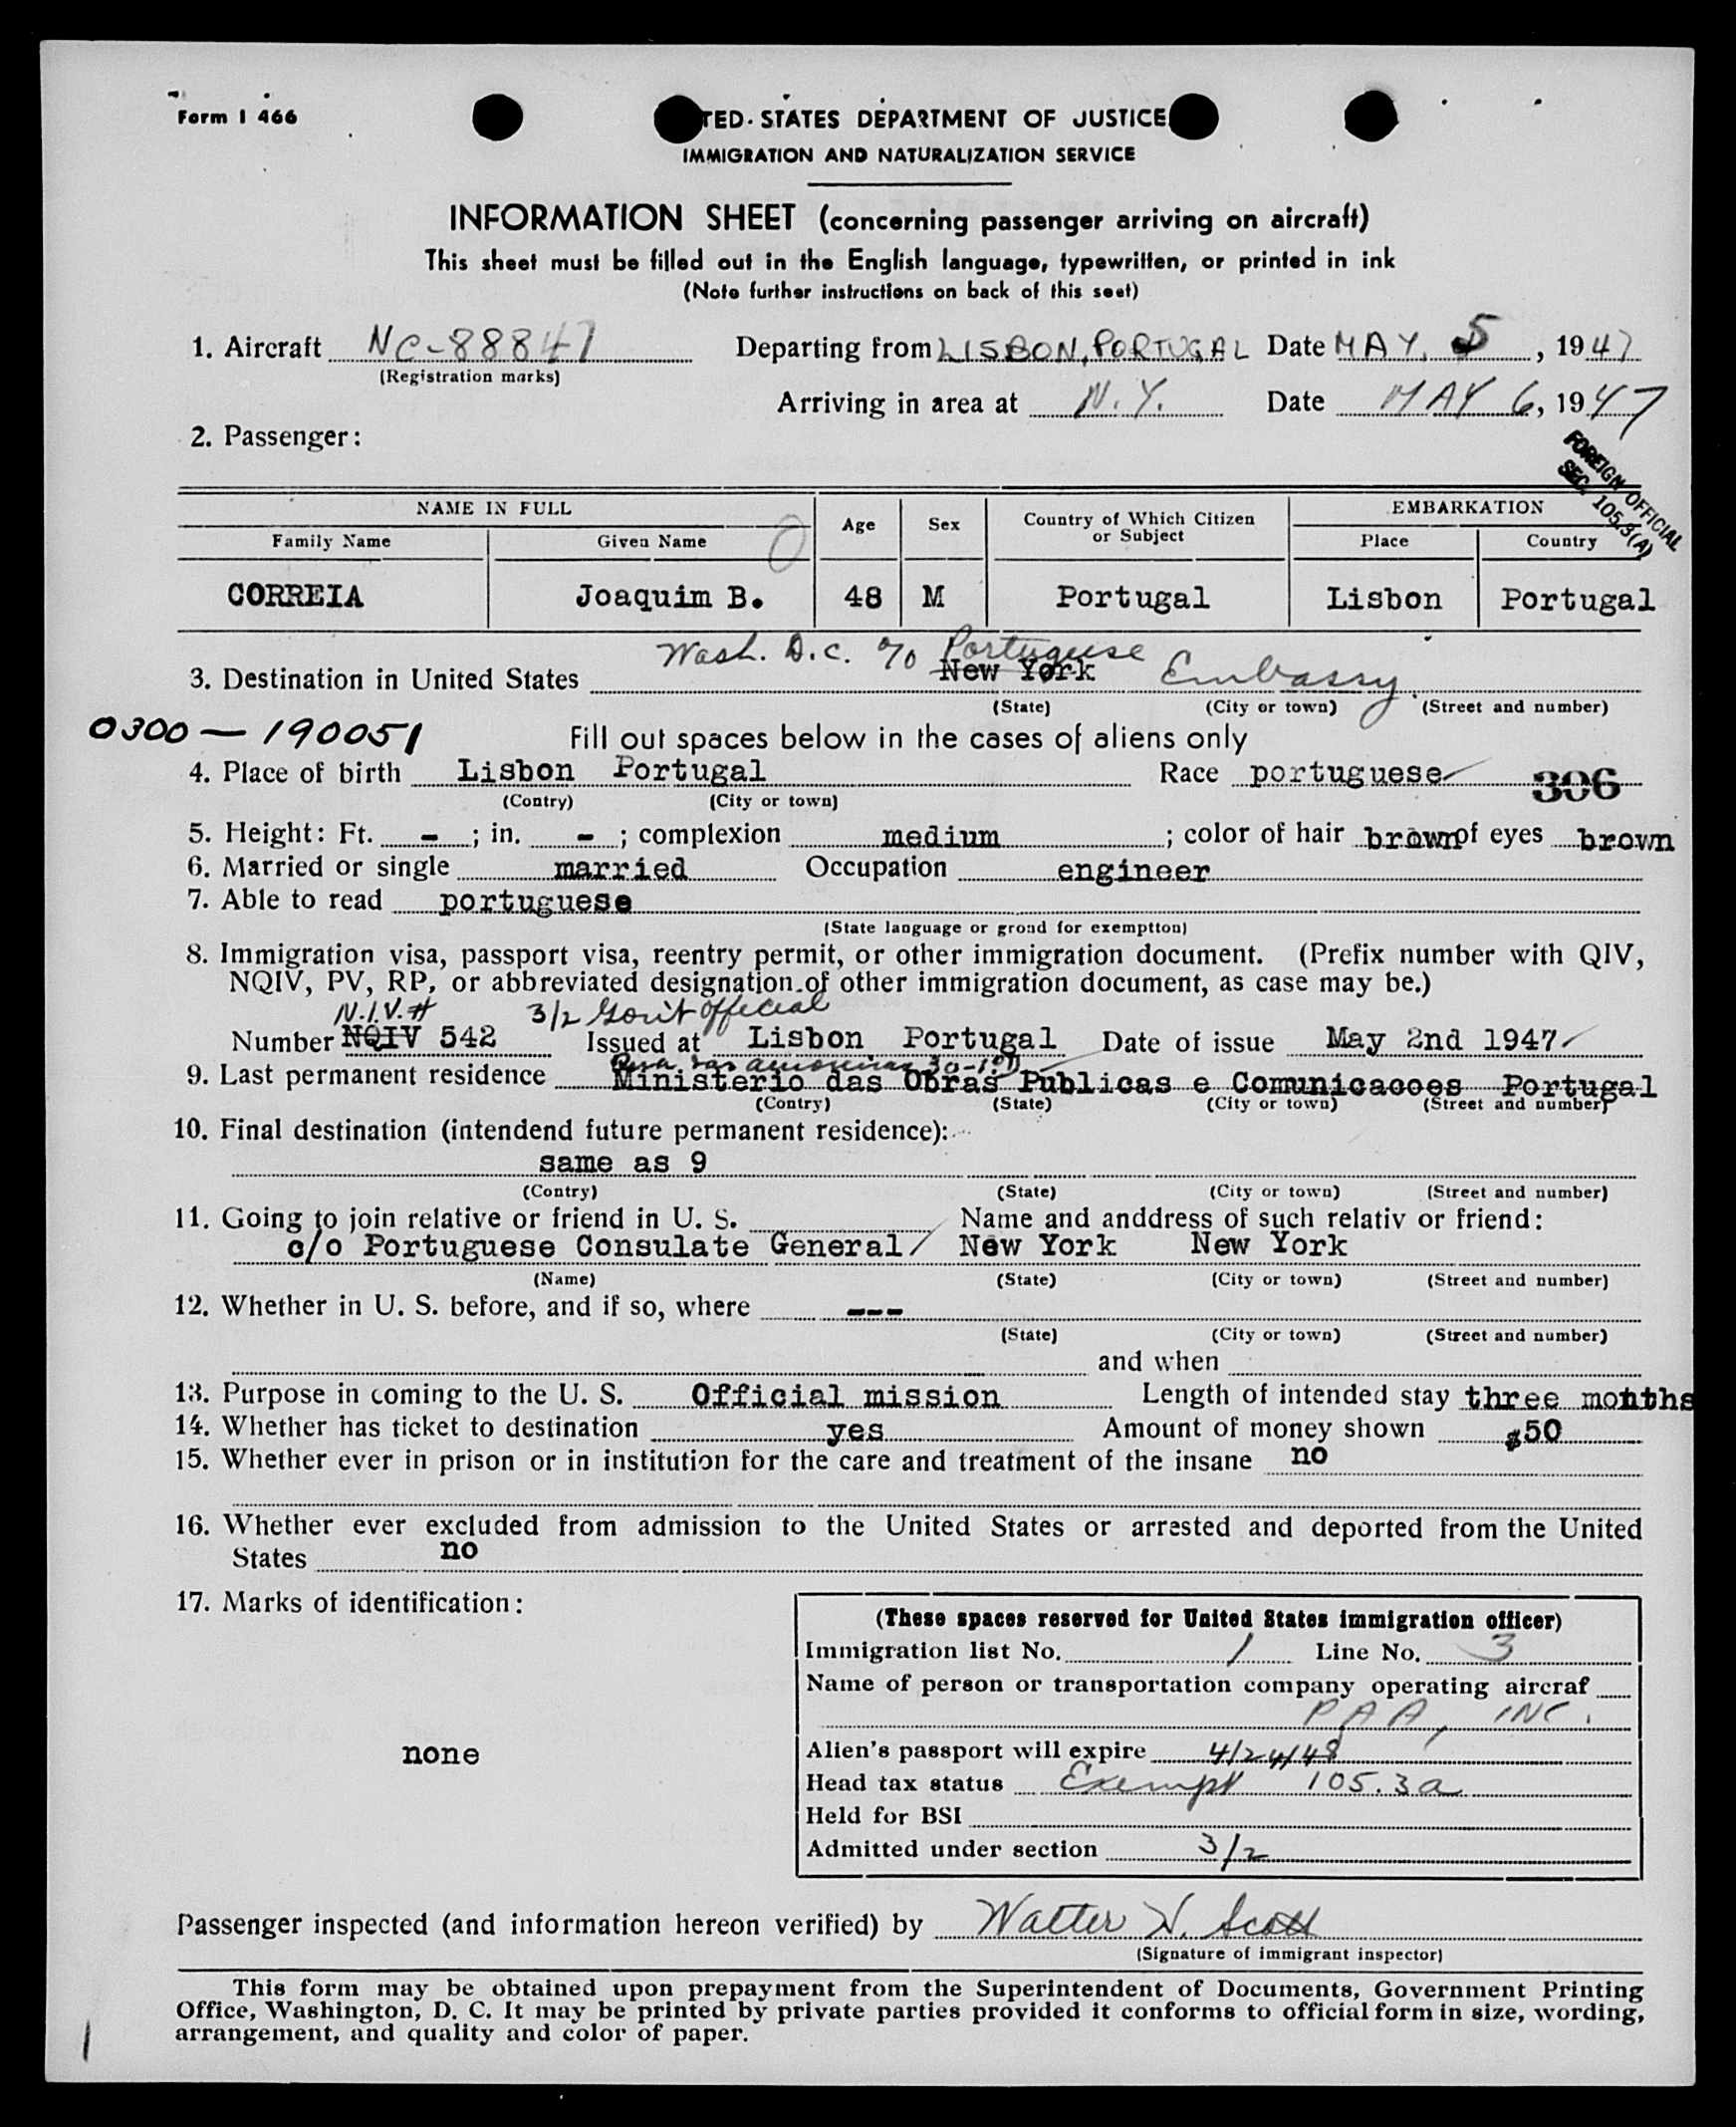 Form I 466
TED STATES DEPARTMENT OF JUSTICE
IMMIGRATION AND NATURALIZATION SERVICE
INFORMATION SHEET (concerning passenger arriving on aircraft)
This sheet must be filled out in the English language, typewritten, or printed in ink
(Note further instructions on back of this seet)
1. Aircraft NC-88847 Departing from LISBON, PORTUGAL Date MAY, 5, 1947
(Registration marks)
Arriving in area at N.Y. Date MAY 6, 1947
2. Passenger:
FOREIGN OFFICIAL
SEC. 105.3(A)
NAME IN FULL Age Sex Country of Which Citizen or Subject EMBARKATION
Family Name Given Name Place Country
CORREIA Joaquim B. 48 M Portugal Lisbon Portugal
Wash. D.C. c/o Portuguese Embassy
3. Destination in United States New York
(State) (City or town) (Street and number)
0300 — 190051 Fill out spaces below in the cases of aliens only
4. Place of birth Lisbon Portugal Race portuguese 306
(Contry) (City or town)
5. Height: Ft. - ; in. - ; complexion medium ; color of hair brown of eyes brown
6. Married or single married Occupation engineer
7. Able to read portuguese
(State language or groud for exemptton)
8. Immigration visa, passport visa, reentry permit, or other immigration document. (Prefix number with QIV,
NQIV, PV, RP, or abbreviated designation of other immigration document, as case may be.)
N.I.V. # 3/2 Gov't official
Number NQIV 542 Issued at Lisbon Portugal Date of issue May 2nd 1947
9. Last permanent residence Ministerio das Obras Publicas e Comunicacoes Portugal
(Contry) (State) (City or town) (Street and number)
10. Final destination (intendend future permanent residence):
same as 9
(Contry) (State) (City or town) (Street and number)
11. Going to join relative or friend in U. S. Name and anddress of such relativ or friend:
c/o Portuguese Consulate General New York New York
(Name) (State) (City or town) (Street and number)
12. Whether in U. S. before, and if so, where ---
(State) (City or town) (Street and number)
and when
13. Purpose in coming to the U. S. Official mission Length of intended stay three months
14. Whether has ticket to destination yes Amount of money shown $50
15. Whether ever in prison or in institution for the care and treatment of the insane no
16. Whether ever excluded from admission to the United States or arrested and deported from the United
States no
17. Marks of identification:
none
(These spaces reserved for United States immigration officer)
Immigration list No. 1 Line No. 3
Name of person or transportation company operating aircraf
PAA, INC.
Alien's passport will expire 4/24/48
Head tax status Exempt 105.3a
Held for BSI
Admitted under section 3/2
Passenger inspected (and information hereon verified) by Walter W. Scott
(Signature of immigrant inspector)
This form may be obtained upon prepayment from the Superintendent of Documents, Government Printing
Office, Washington, D. C. It may be printed by private parties provided it conforms to official form in size, wording,
arrangement, and quality and color of paper.